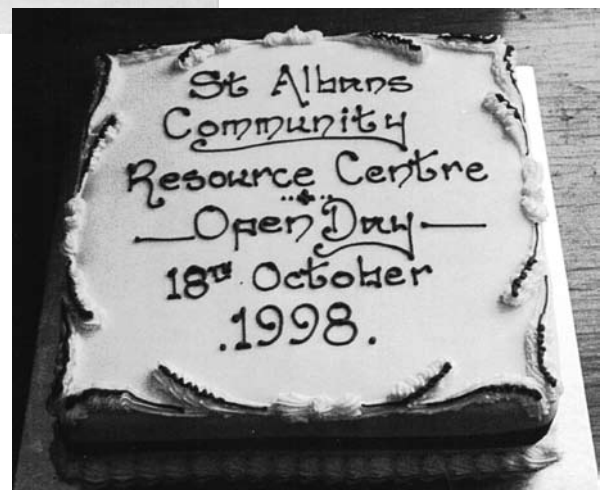 St Albans
Community
Resource Centre
Open Day
18TH October
.1998.